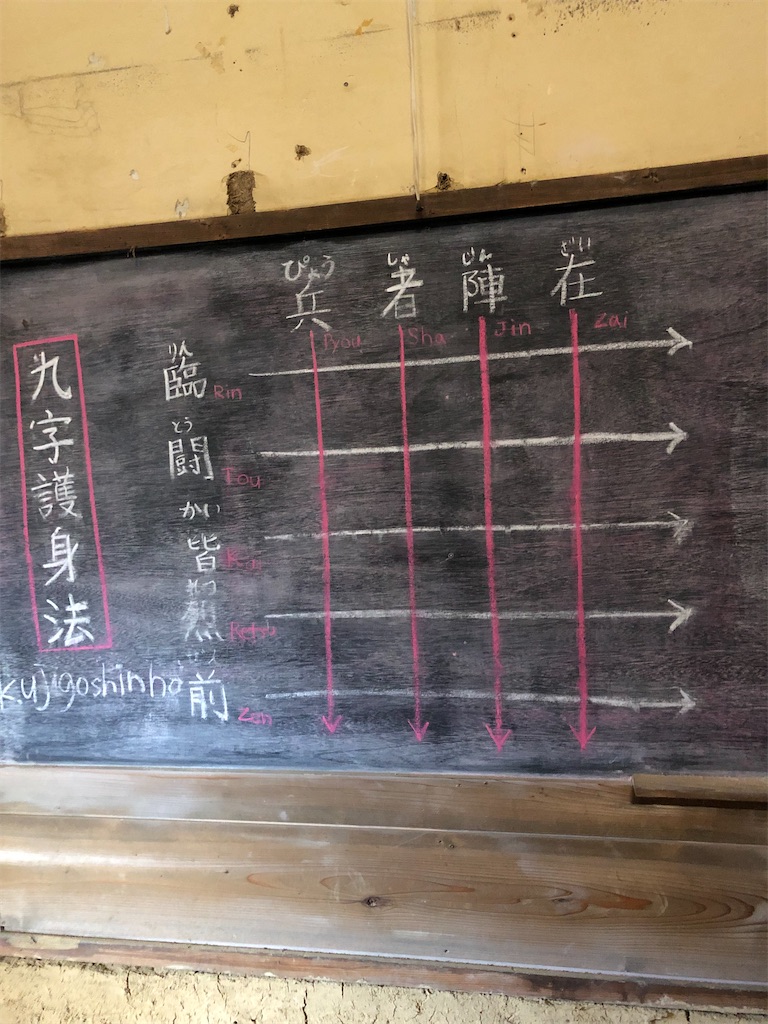 ぴょう しゃ じん ざい
兵 者 陣 在
Pyou Sha Jin Zai
九字護身法
kujigoshinho
りん
臨 Rin
とう
闘 Tou
かい
皆 Kai
前 Zen